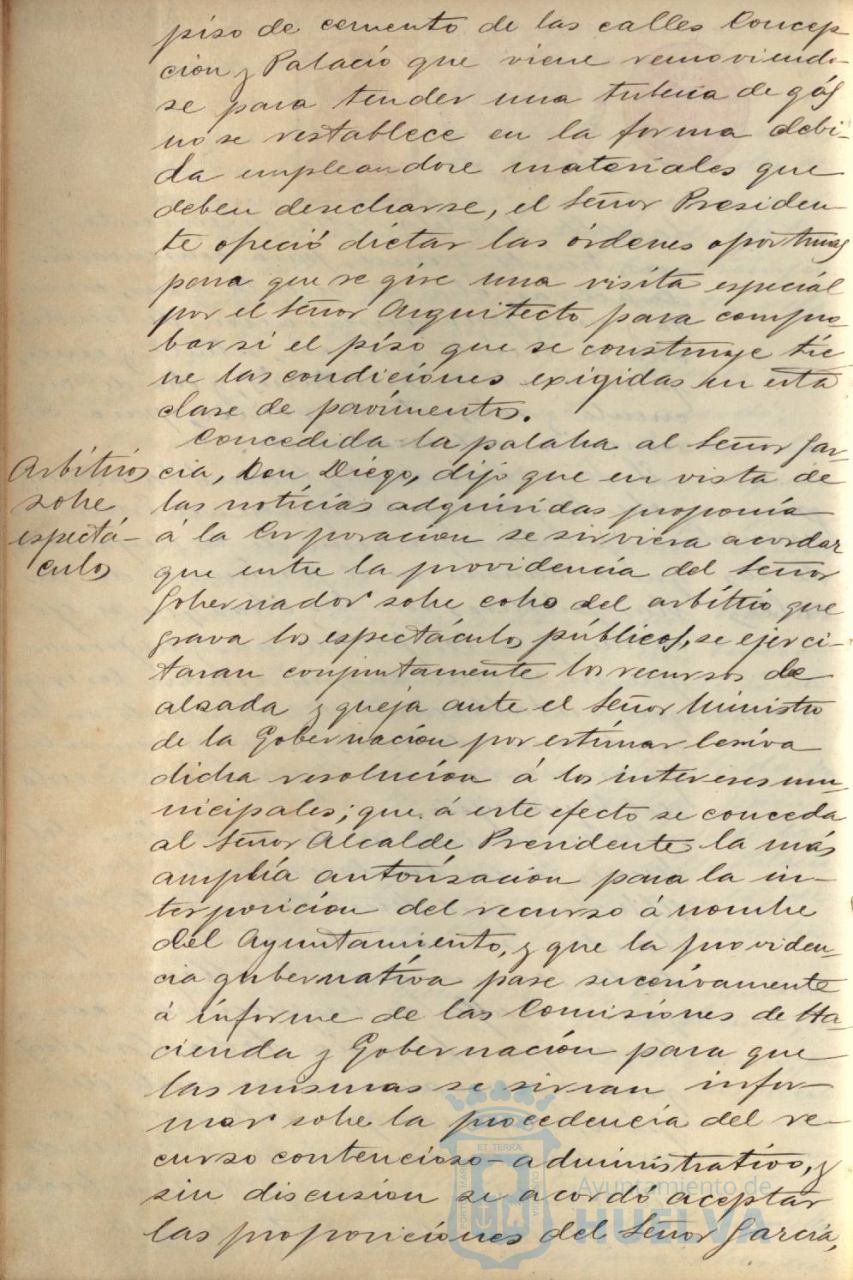 piso de cemento de las calles Concep
cion y Palacio que viene removiendo-
se para tender una tuberia de gás
no se restablece en la forma debi-
da empleandose materiales que
deben desecharse, el Señor Presiden-
te ofreció dictar las órdenes oportunas
para que se gire una visita especiál
por el Señor Arquitecto para compro-
bar si el piso que se construye tie
ne las condiciones exigidas en esta
clase de pavimentos.
Concedida la palabra al Señor Gar-
Arbitrios
sobre
espectá-
culos
cia, Don Diego, dijo que en vista de
las noticias adquiridas proponia
á la Corporacion se sirviera acordar
que entre la providencia del Señor
Gobernador sobre cobro del arbitrio que
grava los espectáculos públicos, se ejerci-
taran conjuntamente los recursos de
alzada y queja ante el Señor Ministro
de la Gobernación por estimar lesiva
dicha resolucion á los intereses mu-
nicipales; que á este efecto se conceda
al Señor Alcalde Presidente la más
amplia autorización para la in-
terposicion del recurso á nombre
del Ayuntamiento, y que la providen-
cia gubernativa pase sucesivamente
á informe de las Comisiones de Ha-
cienda y Gobernación para que
las mismas se sirvan infor-
mar sobre la procedencia del re-
curso contencioso-administrativo, y
sin discusion se acordó aceptar
las proposiciones del Señor Garcia,
Ayuntamiento de
HUELVA